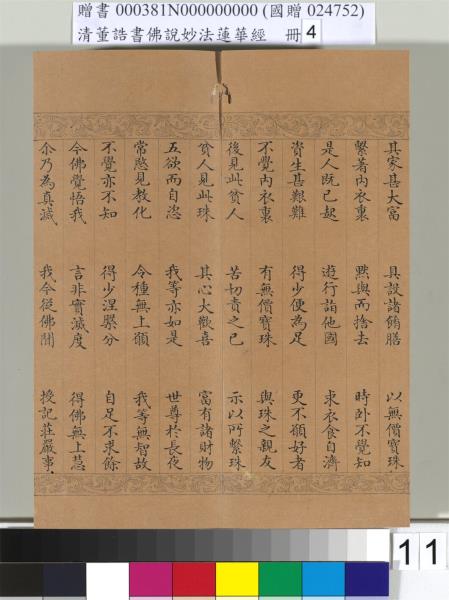 贈書 000381N000000000 (國贈 024752)
清董誥書佛說妙法蓮華經 冊 4
其家甚大富 具設諸餚膳 以無價寶珠
繫著內衣裏 默與而捨去 時臥不覺知
是人既已起 遊行詣他國 求衣食自濟
資生甚艱難 得少便為足 更不願好者
不覺內衣裏 有無價寶珠 與珠之親友
後見此貧人 苦切責之已 示以所繫珠
貧人見此珠 其心大歡喜 富有諸財物
五欲而自恣 我等亦如是 世尊於長夜
常愍見教化 令種無上願 我等無智故
不覺亦不知 得少涅槃分 自足不求餘
今佛覺悟我 言非實滅度 得佛無上慧
尒乃為真滅 我今從佛聞 授記莊嚴事
11